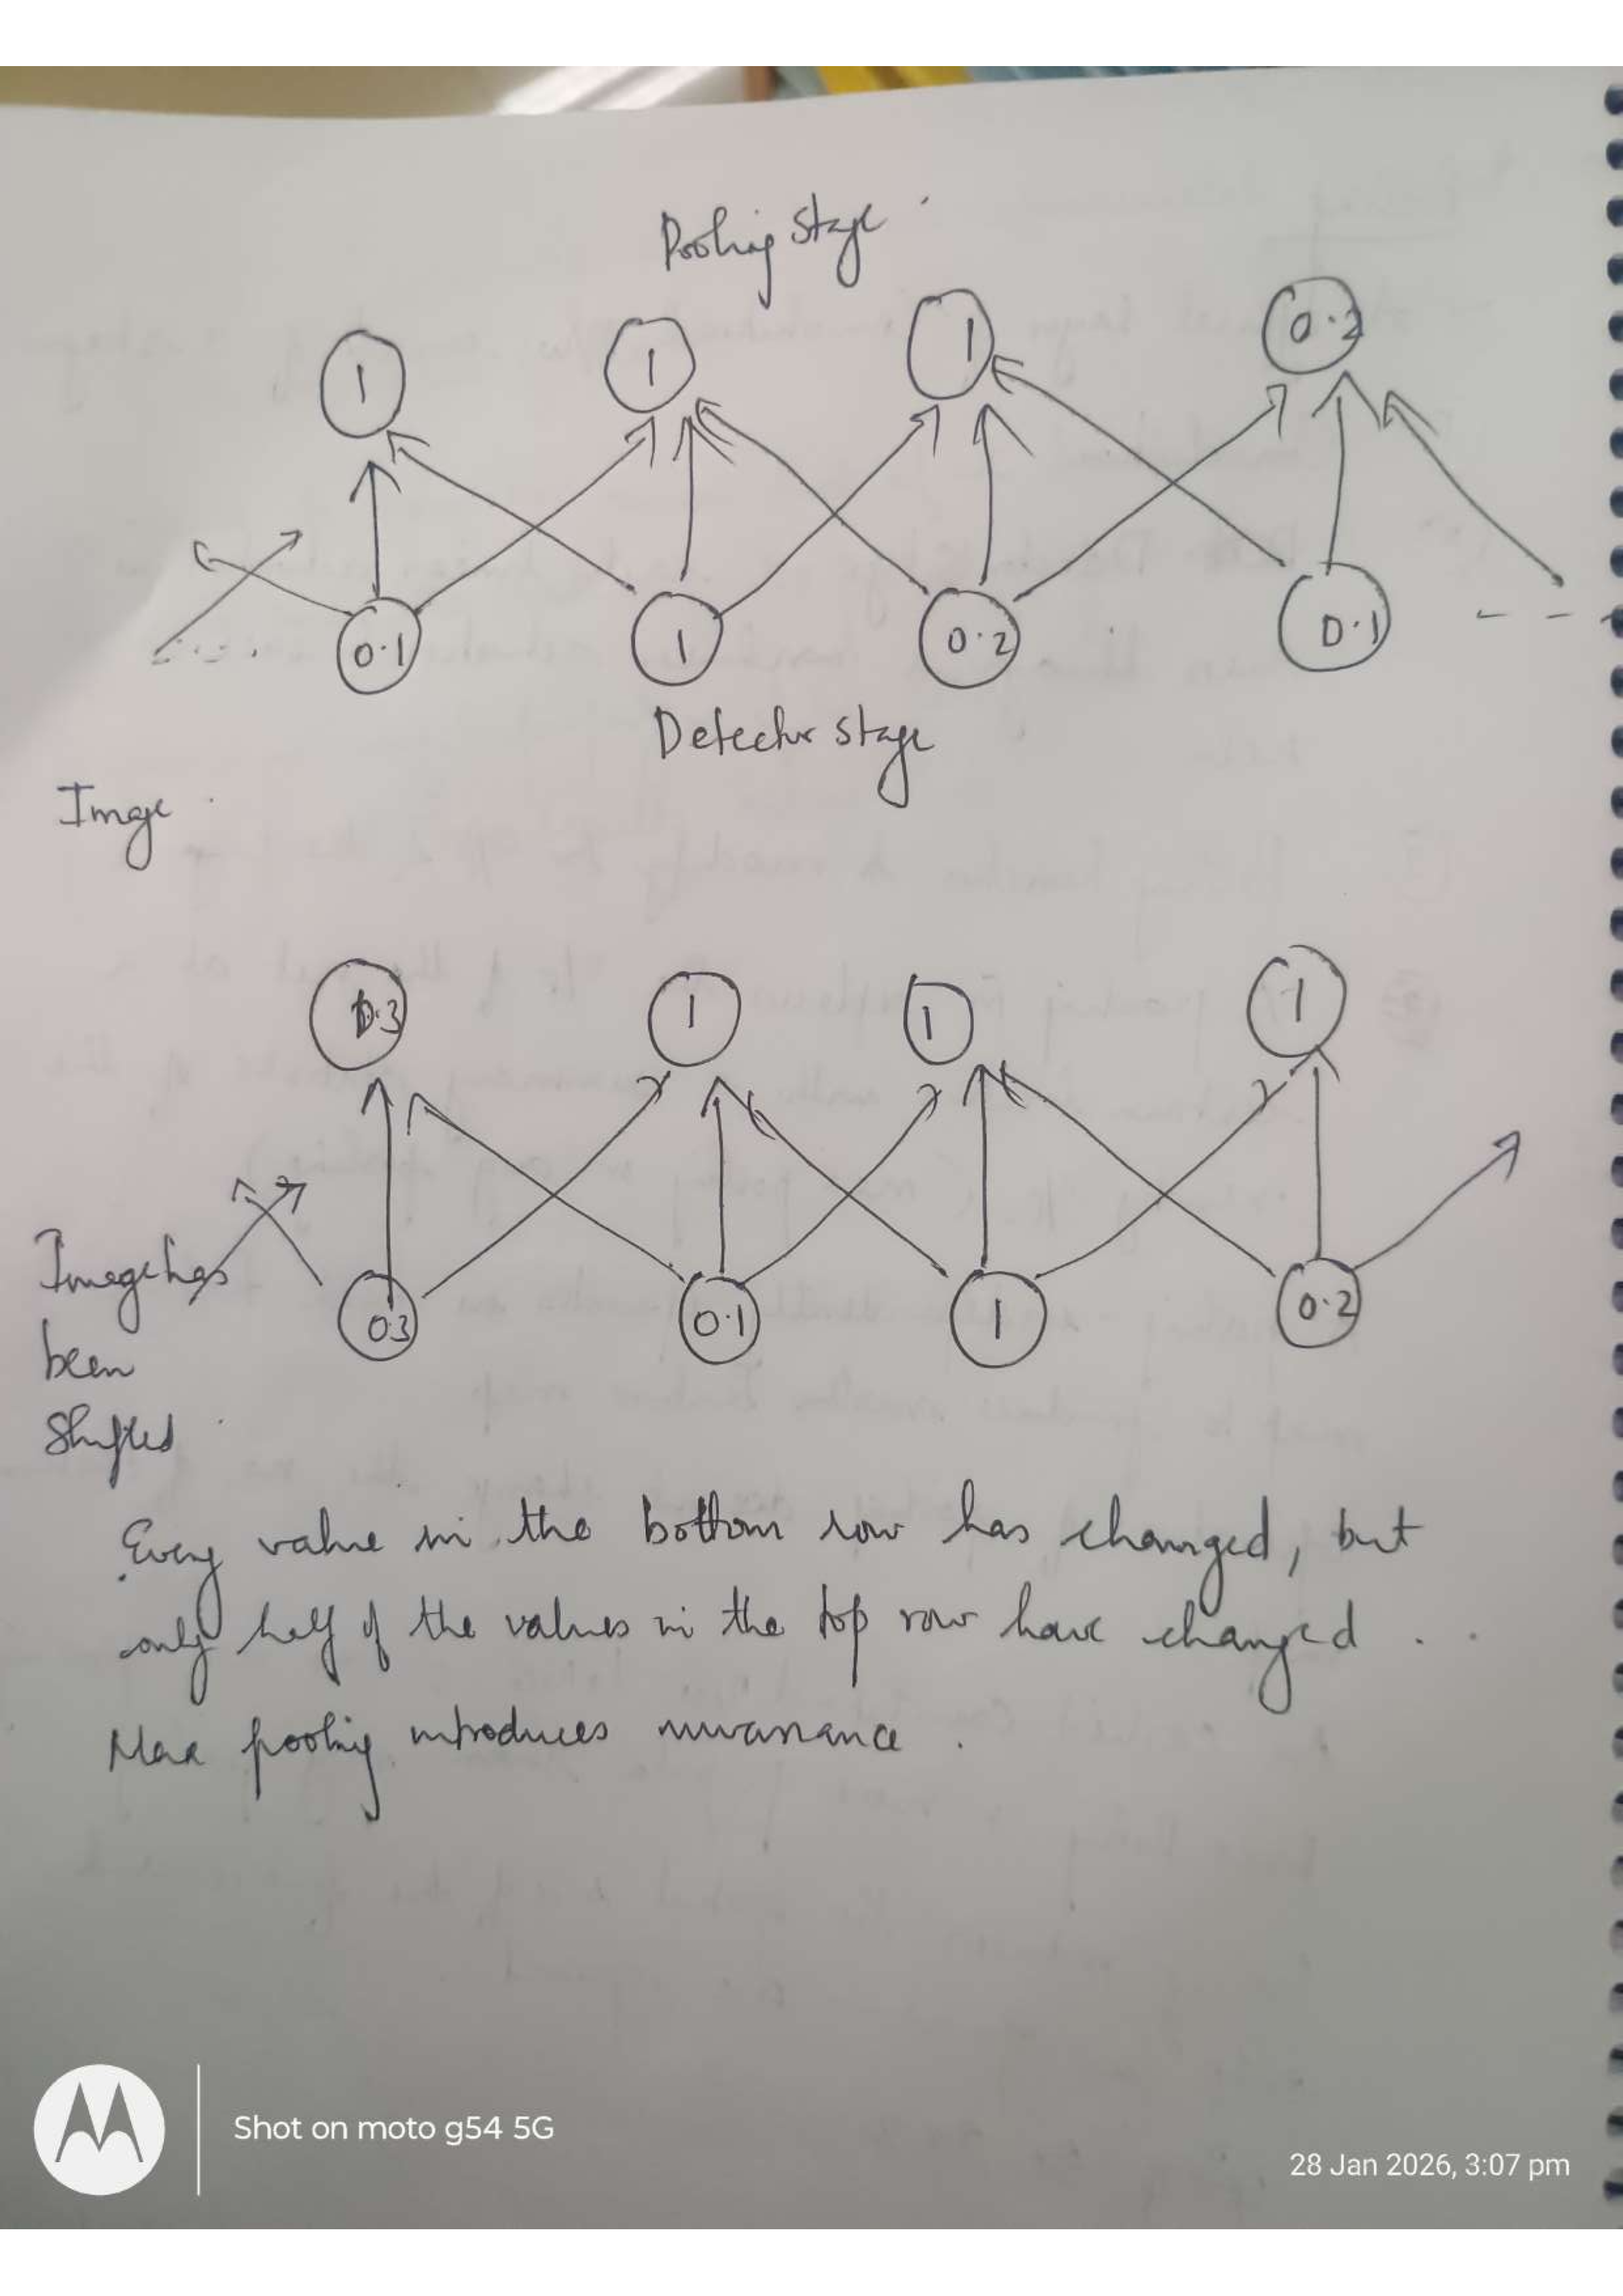 Pooling Stage
1 1 1 0.2
0.1 1 0.2 0.1
Detector stage
Image
0.3 1 1 1
Image has
been
Shifted
03 0.1 1 0.2
Every value in the bottom row has changed, but
only half of the values in the top row have changed.
Max pooling introduces invariance.
Shot on moto g54 5G
28 Jan 2026, 3:07 pm